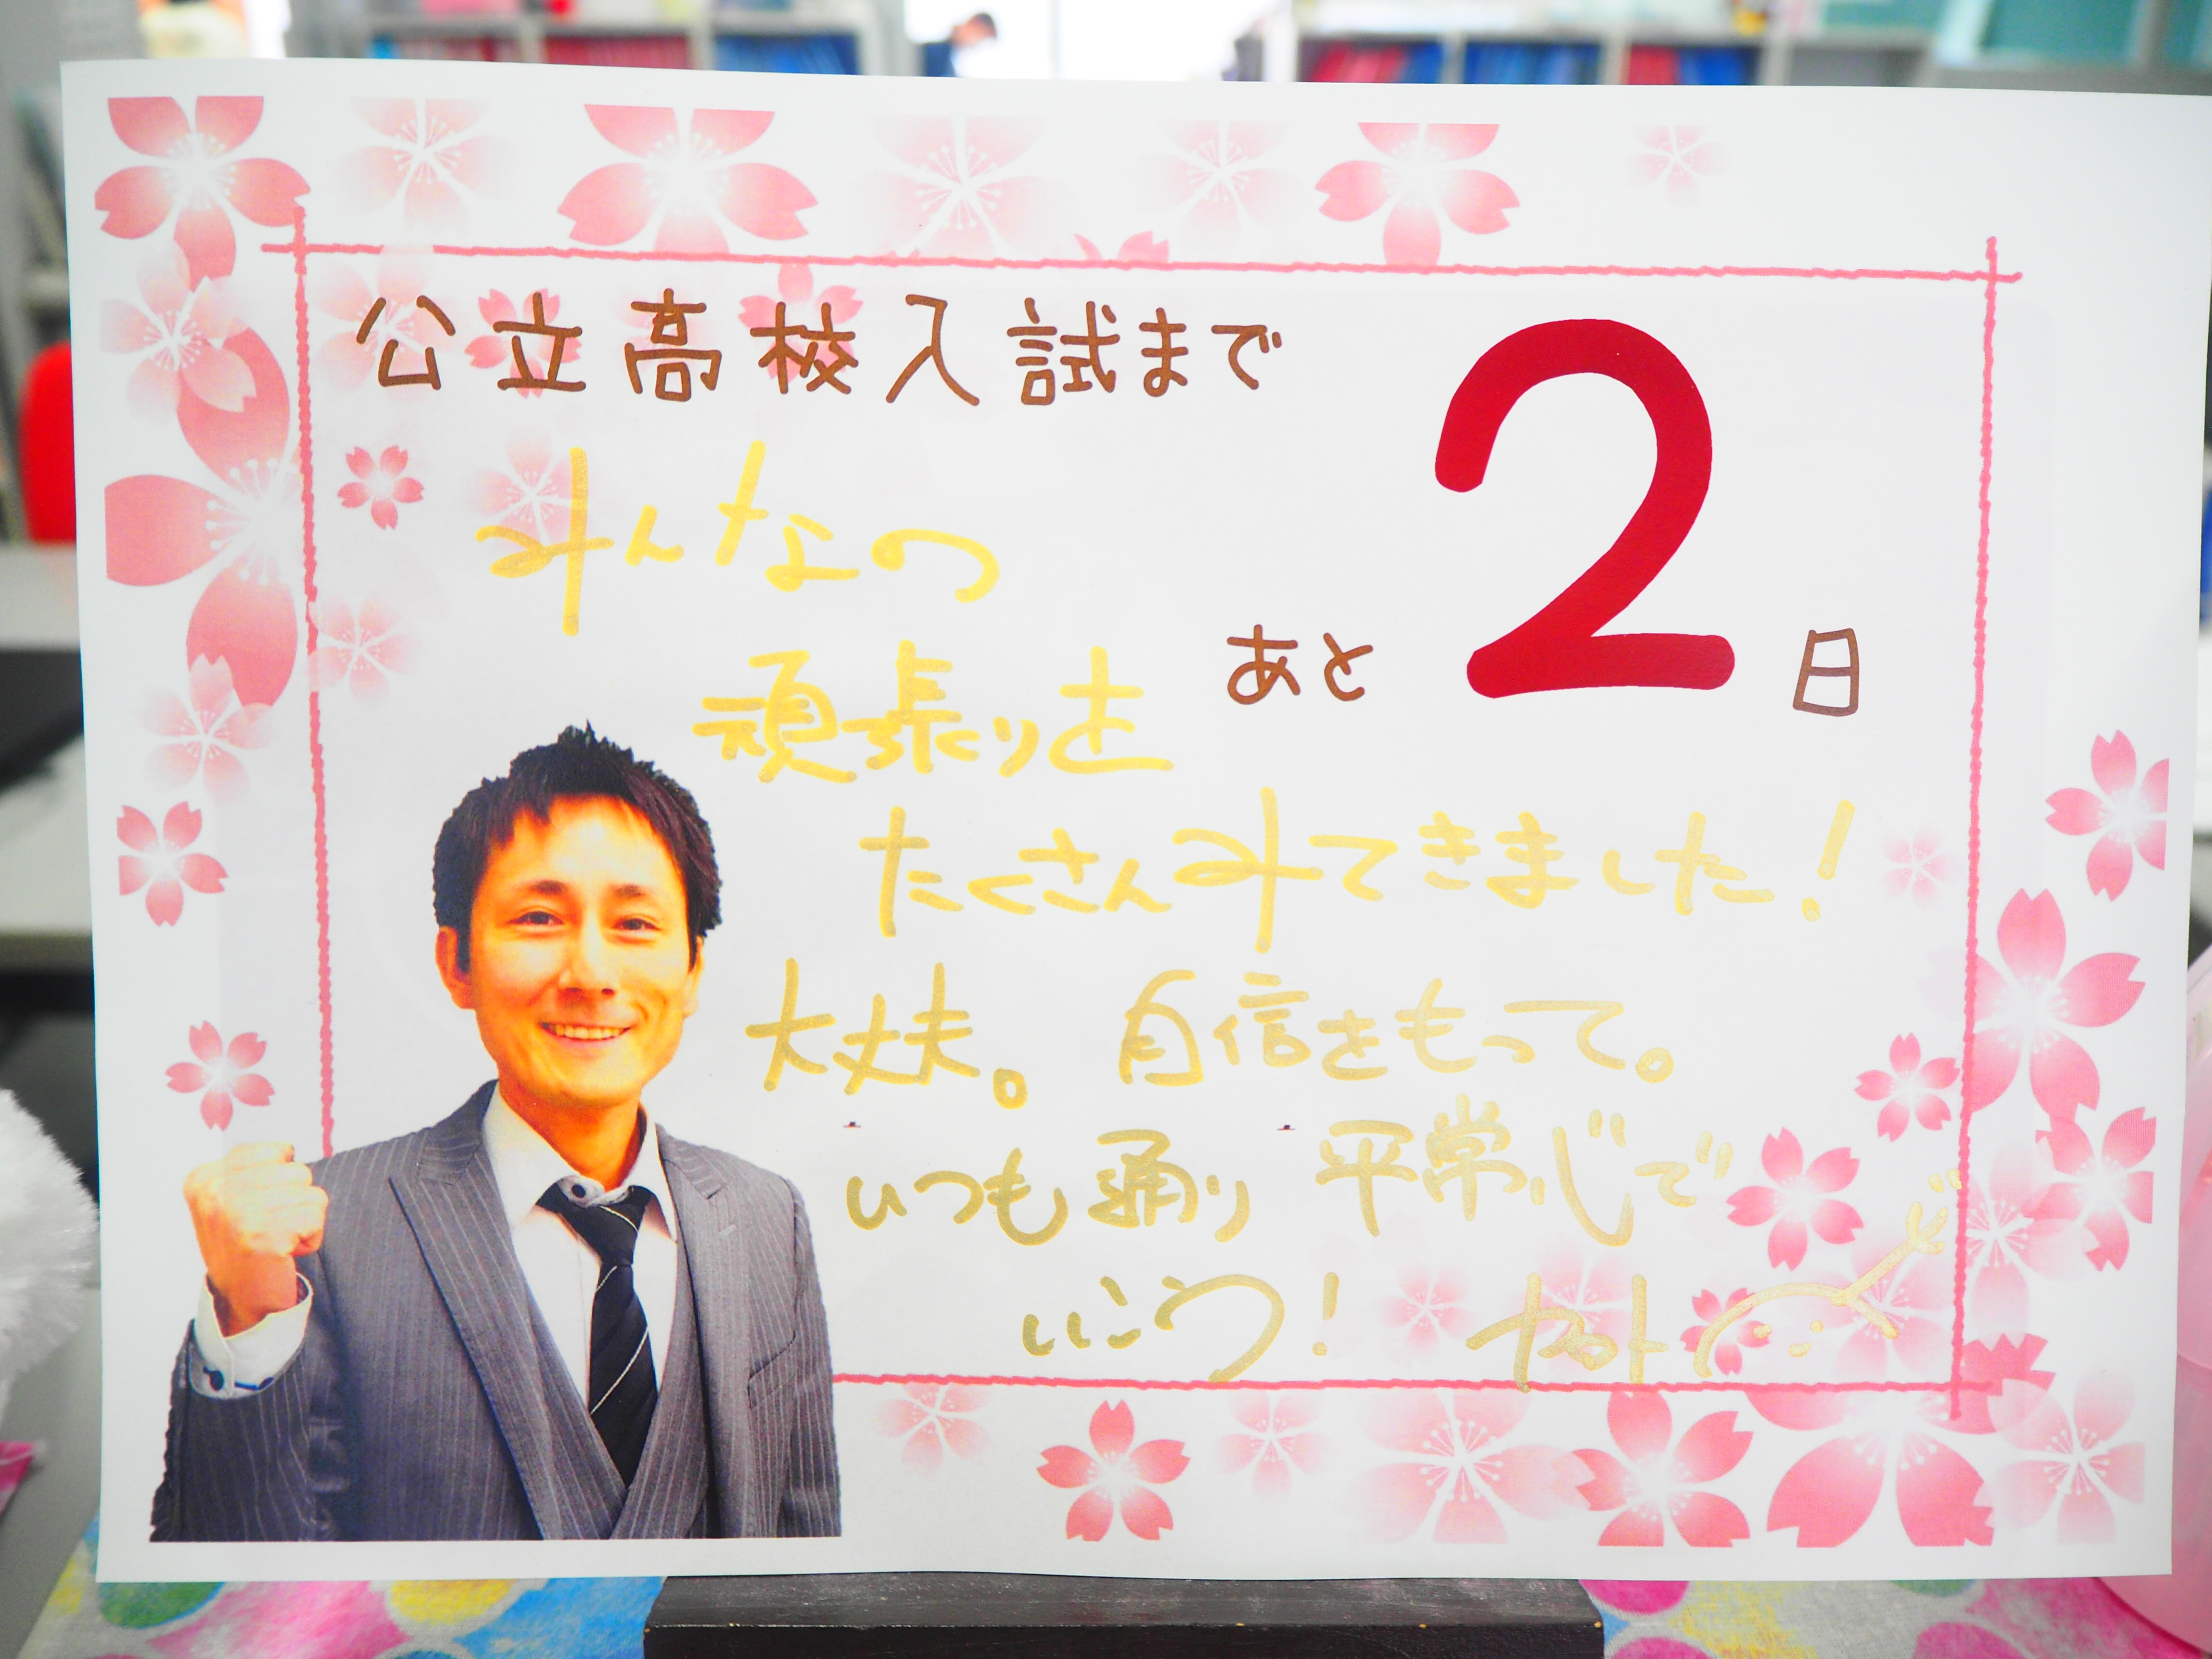 公立高校入試まで
あと2日
みんなの
頑張りを
たくさんみてきました！
大丈夫。自信をもって。
いつも通り平常心で
いこう！